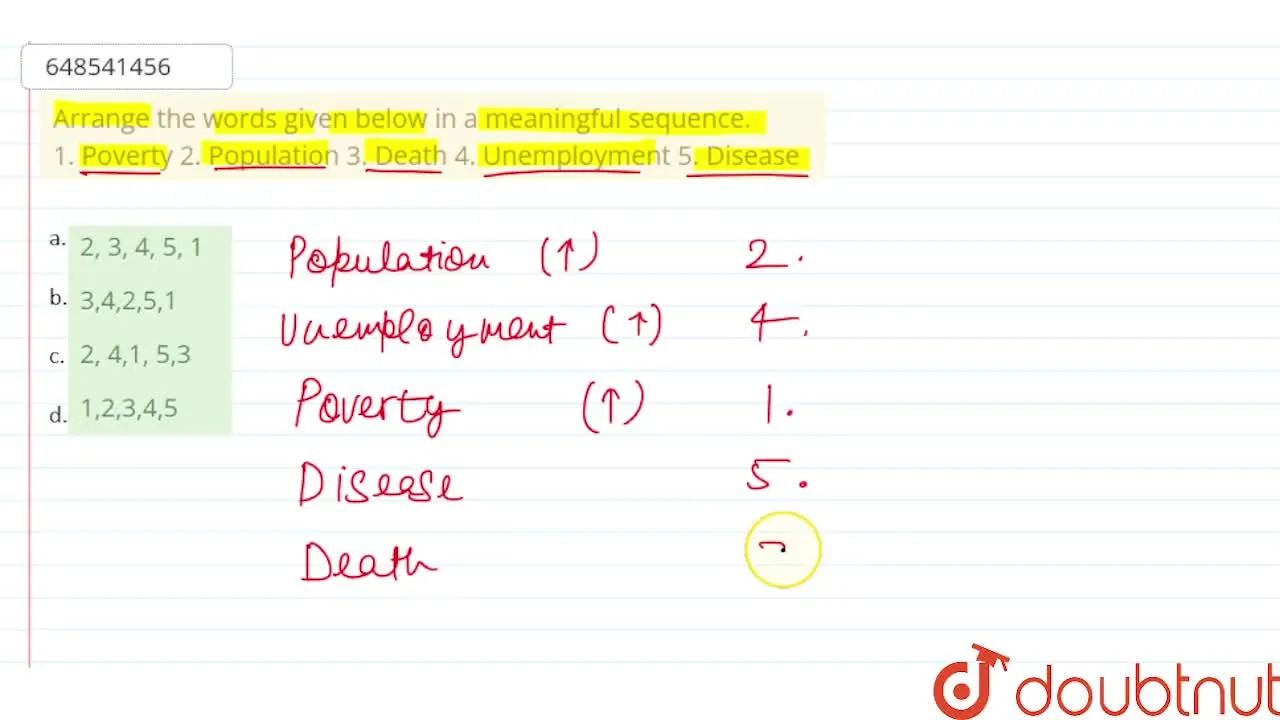 648541456
Arrange the words given below in a meaningful sequence.
1. Poverty 2. Population 3. Death 4. Unemployment 5. Disease
a. 2, 3, 4, 5, 1
b. 3,4,2,5,1
c. 2, 4,1, 5,3
d. 1,2,3,4,5
Population (↑) 2.
Unemployment (↑) 4.
Poverty (↑) 1.
Disease 5.
Death
doubtnut